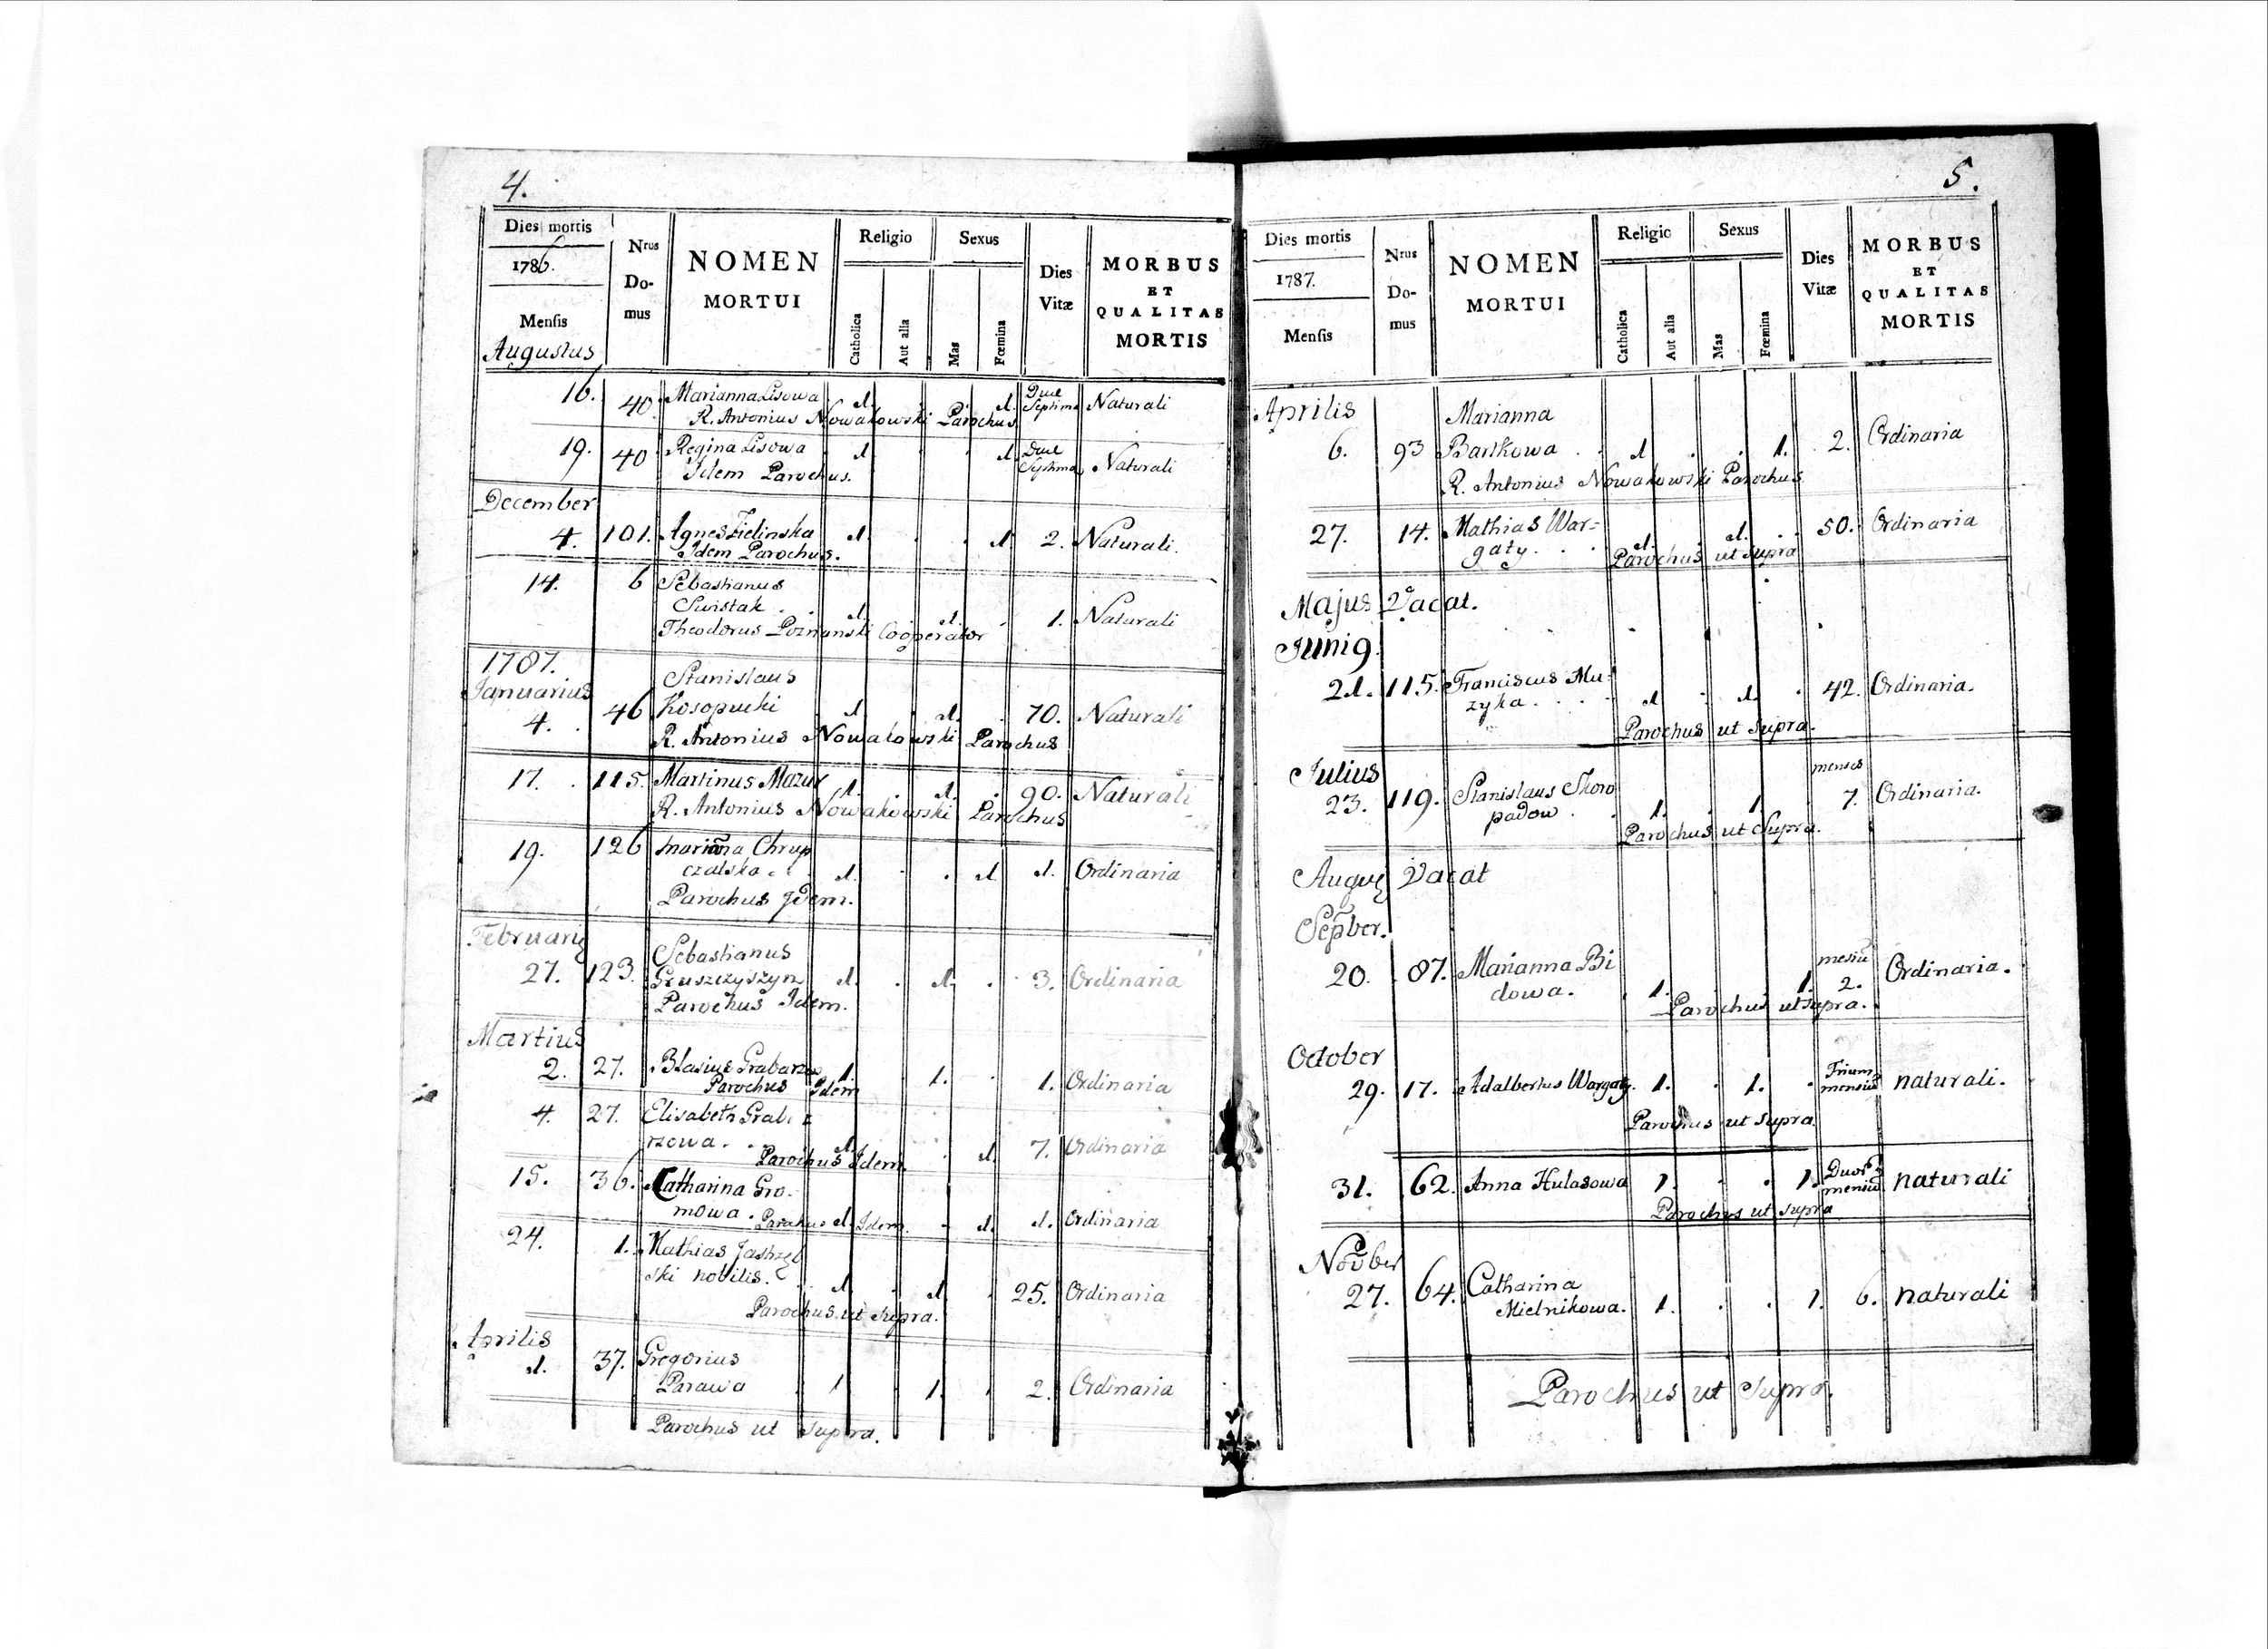 4.
Dies mortis
1786.
Mensis
Augustus
Nrus Domus
NOMEN MORTUI
Religio
Catholica
Aut alia
Sexus
Mas
Fœmina
Dies Vitæ
MORBUS ET QUALITAS MORTIS
16. 40. Marianna Lisowa 1. . . 1. Duae Septima Naturali
R. Antonius Nowakowski Parochus
19. 40 Regina Lisowa 1 . . 1. Duae Septima Naturali
Idem Parochus.
December
4. 101. Agnes Zielinska 1. . . 1 2. Naturali.
Idem Parochus.
14. 6 Sebastianus
Swistak . . 1. . 1. . 1. Naturali
Theodorus Poznanski Cooperator
1787.
Januarius
Stanislaus
4. 46 Kosopucki 1 . 1. . 70. Naturali
R. Antonius Nowakowski Parochus
17. 115. Martinus Mazur 1. . 1. . 90. Naturali
R. Antonius Nowakowski Parochus
19. 126 Mariana Chrup
czalska . . 1. . . 1 1. Ordinaria
Parochus Idem.
Februari9
Sebastianus
27. 123. 1. . 1. . 3. Ordinaria
Parochus Idem.
Martius
2. 27. Blasius Grabarz 1. 1. . 1. Ordinaria
Parochus Idem
4. 27. Elisabeth Graba
rzowa . . 1. . 1. 7. Ordinaria
Parochus Idem
15. 36. Catharina Gro-
mowa . 1. . 1. 1. Ordinaria
Parochus Idem.
24. 1. Mathias Jastrzęb
ski nobilis. . 1. . 1 . 25. Ordinaria
Parochus ut supra.
Aprilis
1. 37. Gregorius
Parawa 1 1. . 2. Ordinaria
Parochus ut supra.
5.
Dies mortis
1787.
Mensis
Nrus Domus
NOMEN MORTUI
Religio
Catholica
Aut alia
Sexus
Mas
Fœmina
Dies Vitæ
MORBUS ET QUALITAS MORTIS
Aprilis
Marianna
6. 93 Bartkowa . . 1 . . 1. 2. Ordinaria
R. Antonius Nowakowski Parochus
27. 14. Mathias War=
gaty . . . 1. . 1. . . 50. Ordinaria
Parochus ut supra
Majus Vacat.
Juni9.
21. 115. Franciscus Mu-
zyka . . . . 1 . 1. . 42. Ordinaria.
Parochus ut supra.
Julius
menses
23. 119. Stanislaus Skoro
padow . . 1. . 1 7. Ordinaria.
Parochus ut Supra.
Augu9 Vacat
Sepber.
mesiu
20. 87. Marianna Bi
dowa. 1. . 1. 2. Ordinaria.
Parochus ut supra.
October
29. 17. Adalbertus Wargaty. 1. . 1. . Trium mensiu naturali.
Parochus ut supra.
31. 62. Anna Hulasowa 1. . . 1. Duor mensiu naturali
Parochus ut supra
Noober
27. 64. Catharina
Mielnikowa. 1. . . 1. 6. naturali
Parochus ut Supra.